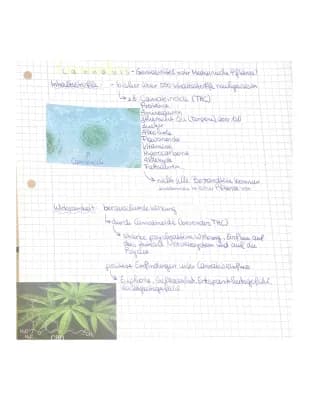 Cannabis - Genussmittel oder Medizinische Pflanze?
Inhaltsstoffe: - bisher über 500 Inhaltsstoffe nachgewiesen
z.B. Cannabinoide (THC)
Proteine
Aminosäuren
ätherische Öle (Terpene) über 120
Zucker
Alkohole
Flavonoide
Vitamine
Hydrocarbone
Aldehyde
Fettsäuren
nicht alle Bestandteile kommen
zusammen in einer Pflanze vor
Cannabinoide
Wirksamkeit: berauschende Wirkung
durch Cannabinoide (besonders THC)
starke psychoaktive Wirkung, Einfluss auf
das zentrale Nervensystem und auf die
Psyche
positive Empfindungen unter Cannabiseinfluss
Euphorie, Gelassenheit, Entspanntheitsgefühl,
CBD